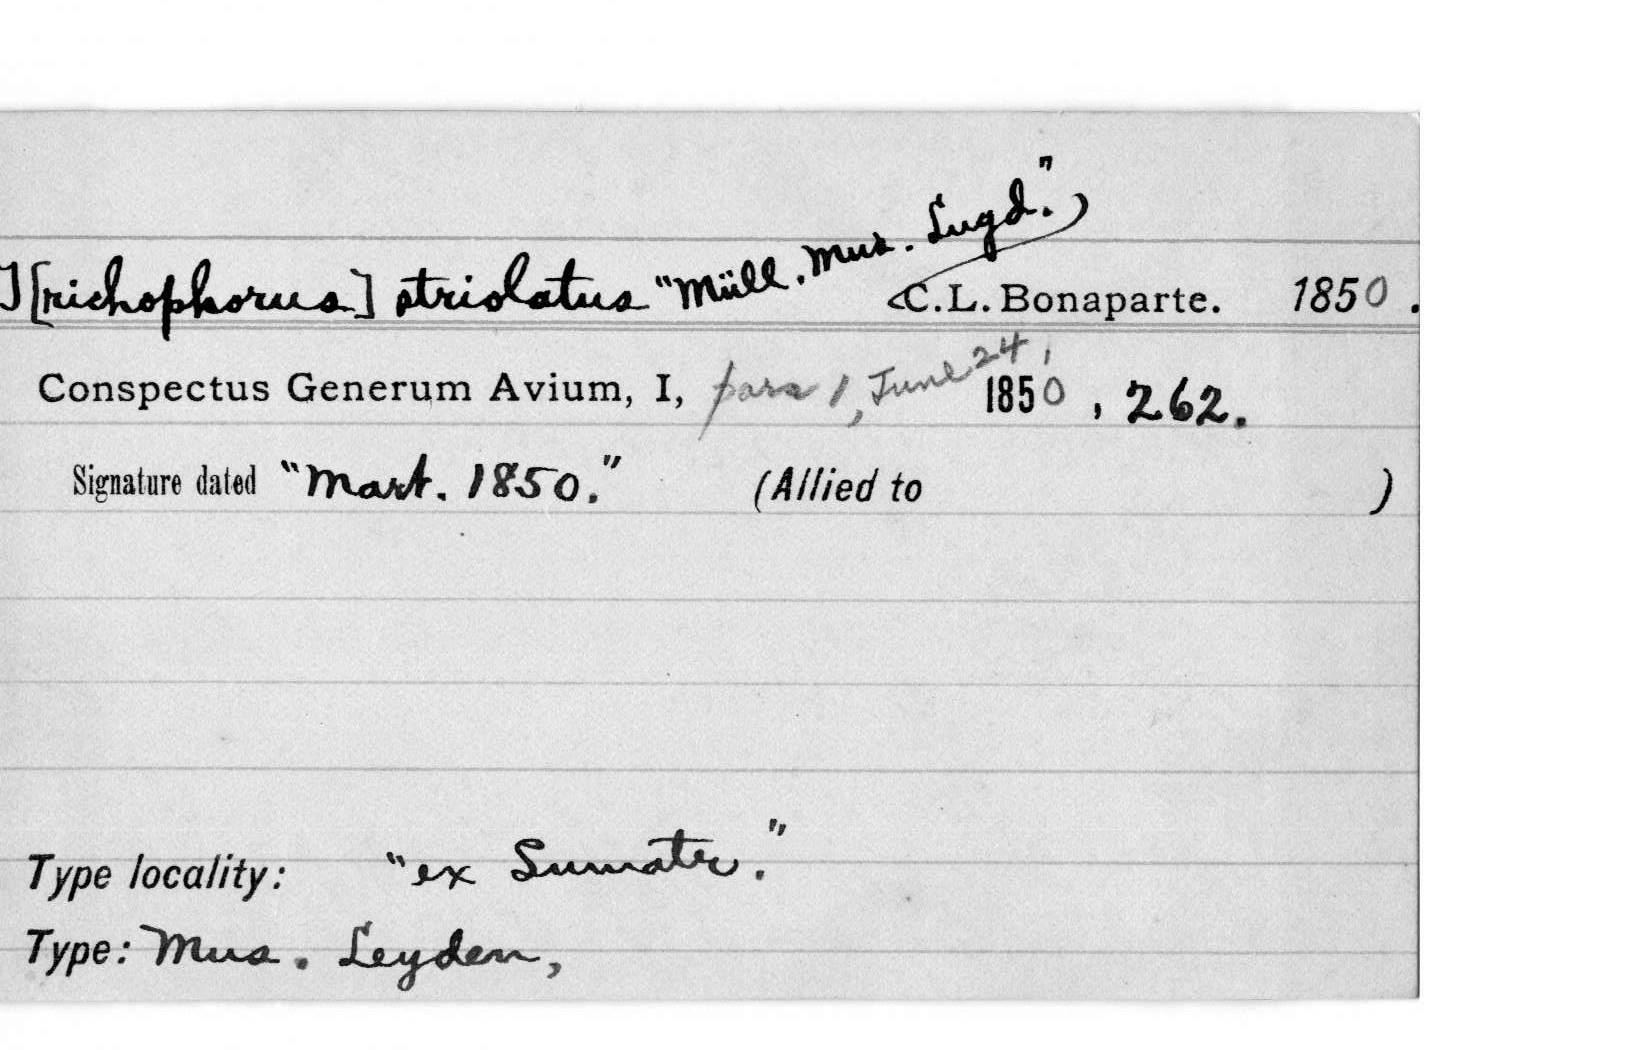 T[richophorus] striolatus "Müll. Mus. Lugd.")
C.L. Bonaparte. 1850.
Conspectus Generum Avium, I, pars 1, June 24, 1850, 262.
Signature dated "Mart. 1850." (Allied to )
Type locality: "ex Sumatr."
Type: Mus. Leyden,